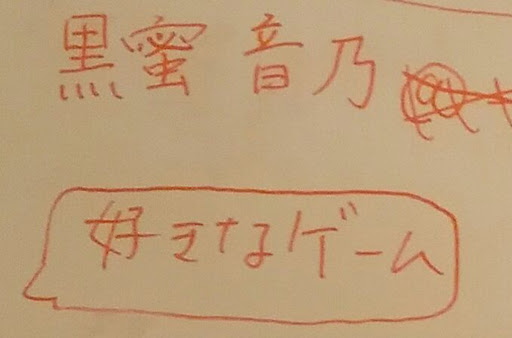 黒蜜 音乃
好きなゲーム